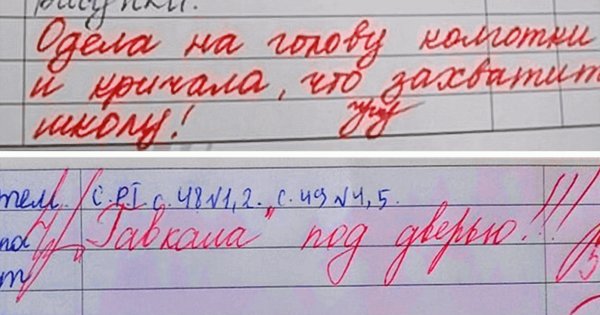 рисунки.
Одела на голову колготки
и кричала, что захватит
школу!
тель С. РТ с. 48 №1, 2. с. 49 №4, 5.
"Гавкала" под дверью!!!